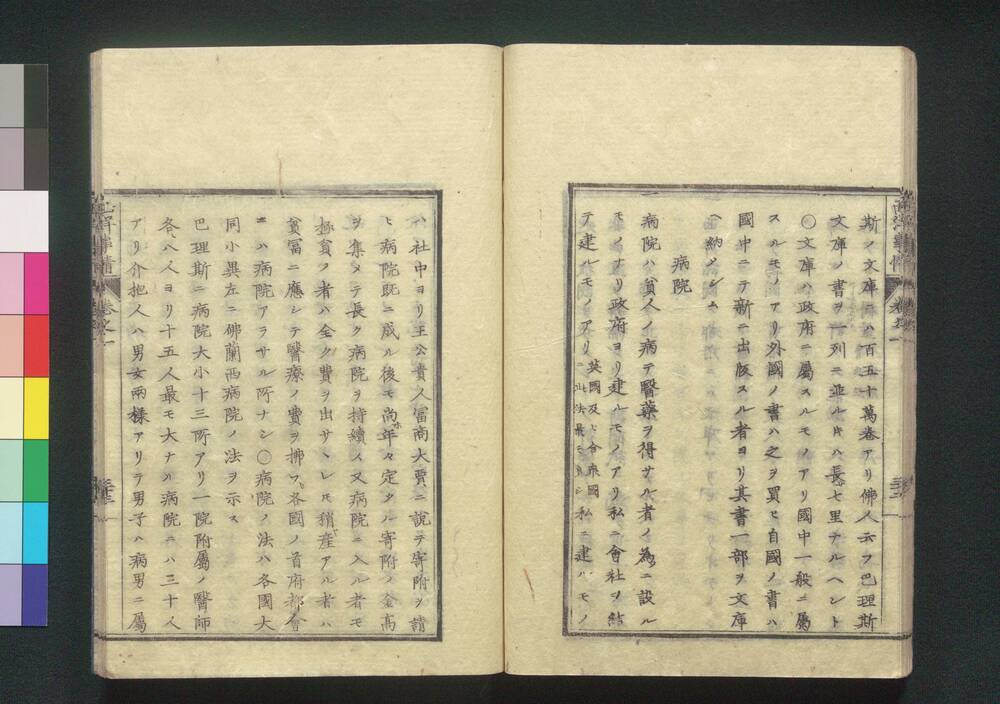 斯ノ文庫ニハ百五十萬卷アリ佛人云フ巴理斯
文庫ノ書ヲ一列ニ並ルキハ長七里ナルヘシト
〇文庫ハ政府ニ屬スルモノアリ國中一般ニ屬
スルモノアリ外國ノ書ハ之ヲ買ヒ自國ノ書ハ
國中ニテ新ニ出版スル者ヨリ其書一部ヲ文庫
ヘ納メシム
病院
病院ハ貧人ノ病テ醫藥ヲ得サル者ノ為ニ設ル
モノナリ政府ヨリ建ルモノアリ私ニ會社ヲ結
テ建ルモノアリ英國及ヒ合衆國ニ此法最モ多シ私ニ建ルモノ
ハ社中ヨリ王公貴人冨商大賈ニ說テ寄附ヲ請
ヒ病院既ニ成ル後モ尚年々定タル寄附ノ金高
ヲ集メテ長ク病院ヲ持續ス又病院ニ入ル者モ
極貧ノ者ハ全ク費ヲ出サヽレモ稍産アル者ハ
貧冨ニ應シテ醫療ノ費ヲ拂フ各國ノ首府都會
ニハ病院アラサル所ナシ〇病院ノ法ハ各國大
同小異左ニ佛蘭西病院ノ法ヲ示ス
巴理斯ニ病院大小十三所アリ一院附屬ノ醫師
各八人ヨリ十五人最モ大ナル病院ニハ三十人
アリ介抱人ハ男女兩樣アリテ男子ハ病男ニ屬